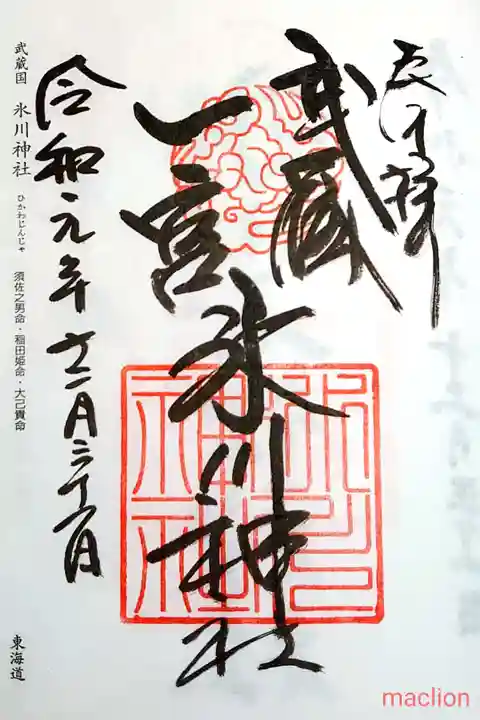 武蔵
一宮
氷川神社
氷川
神社
令和元年
武蔵国 氷川神社 ひかわじんじゃ 須佐之男命・稲田姫命・大己貴命
東海道
maclion